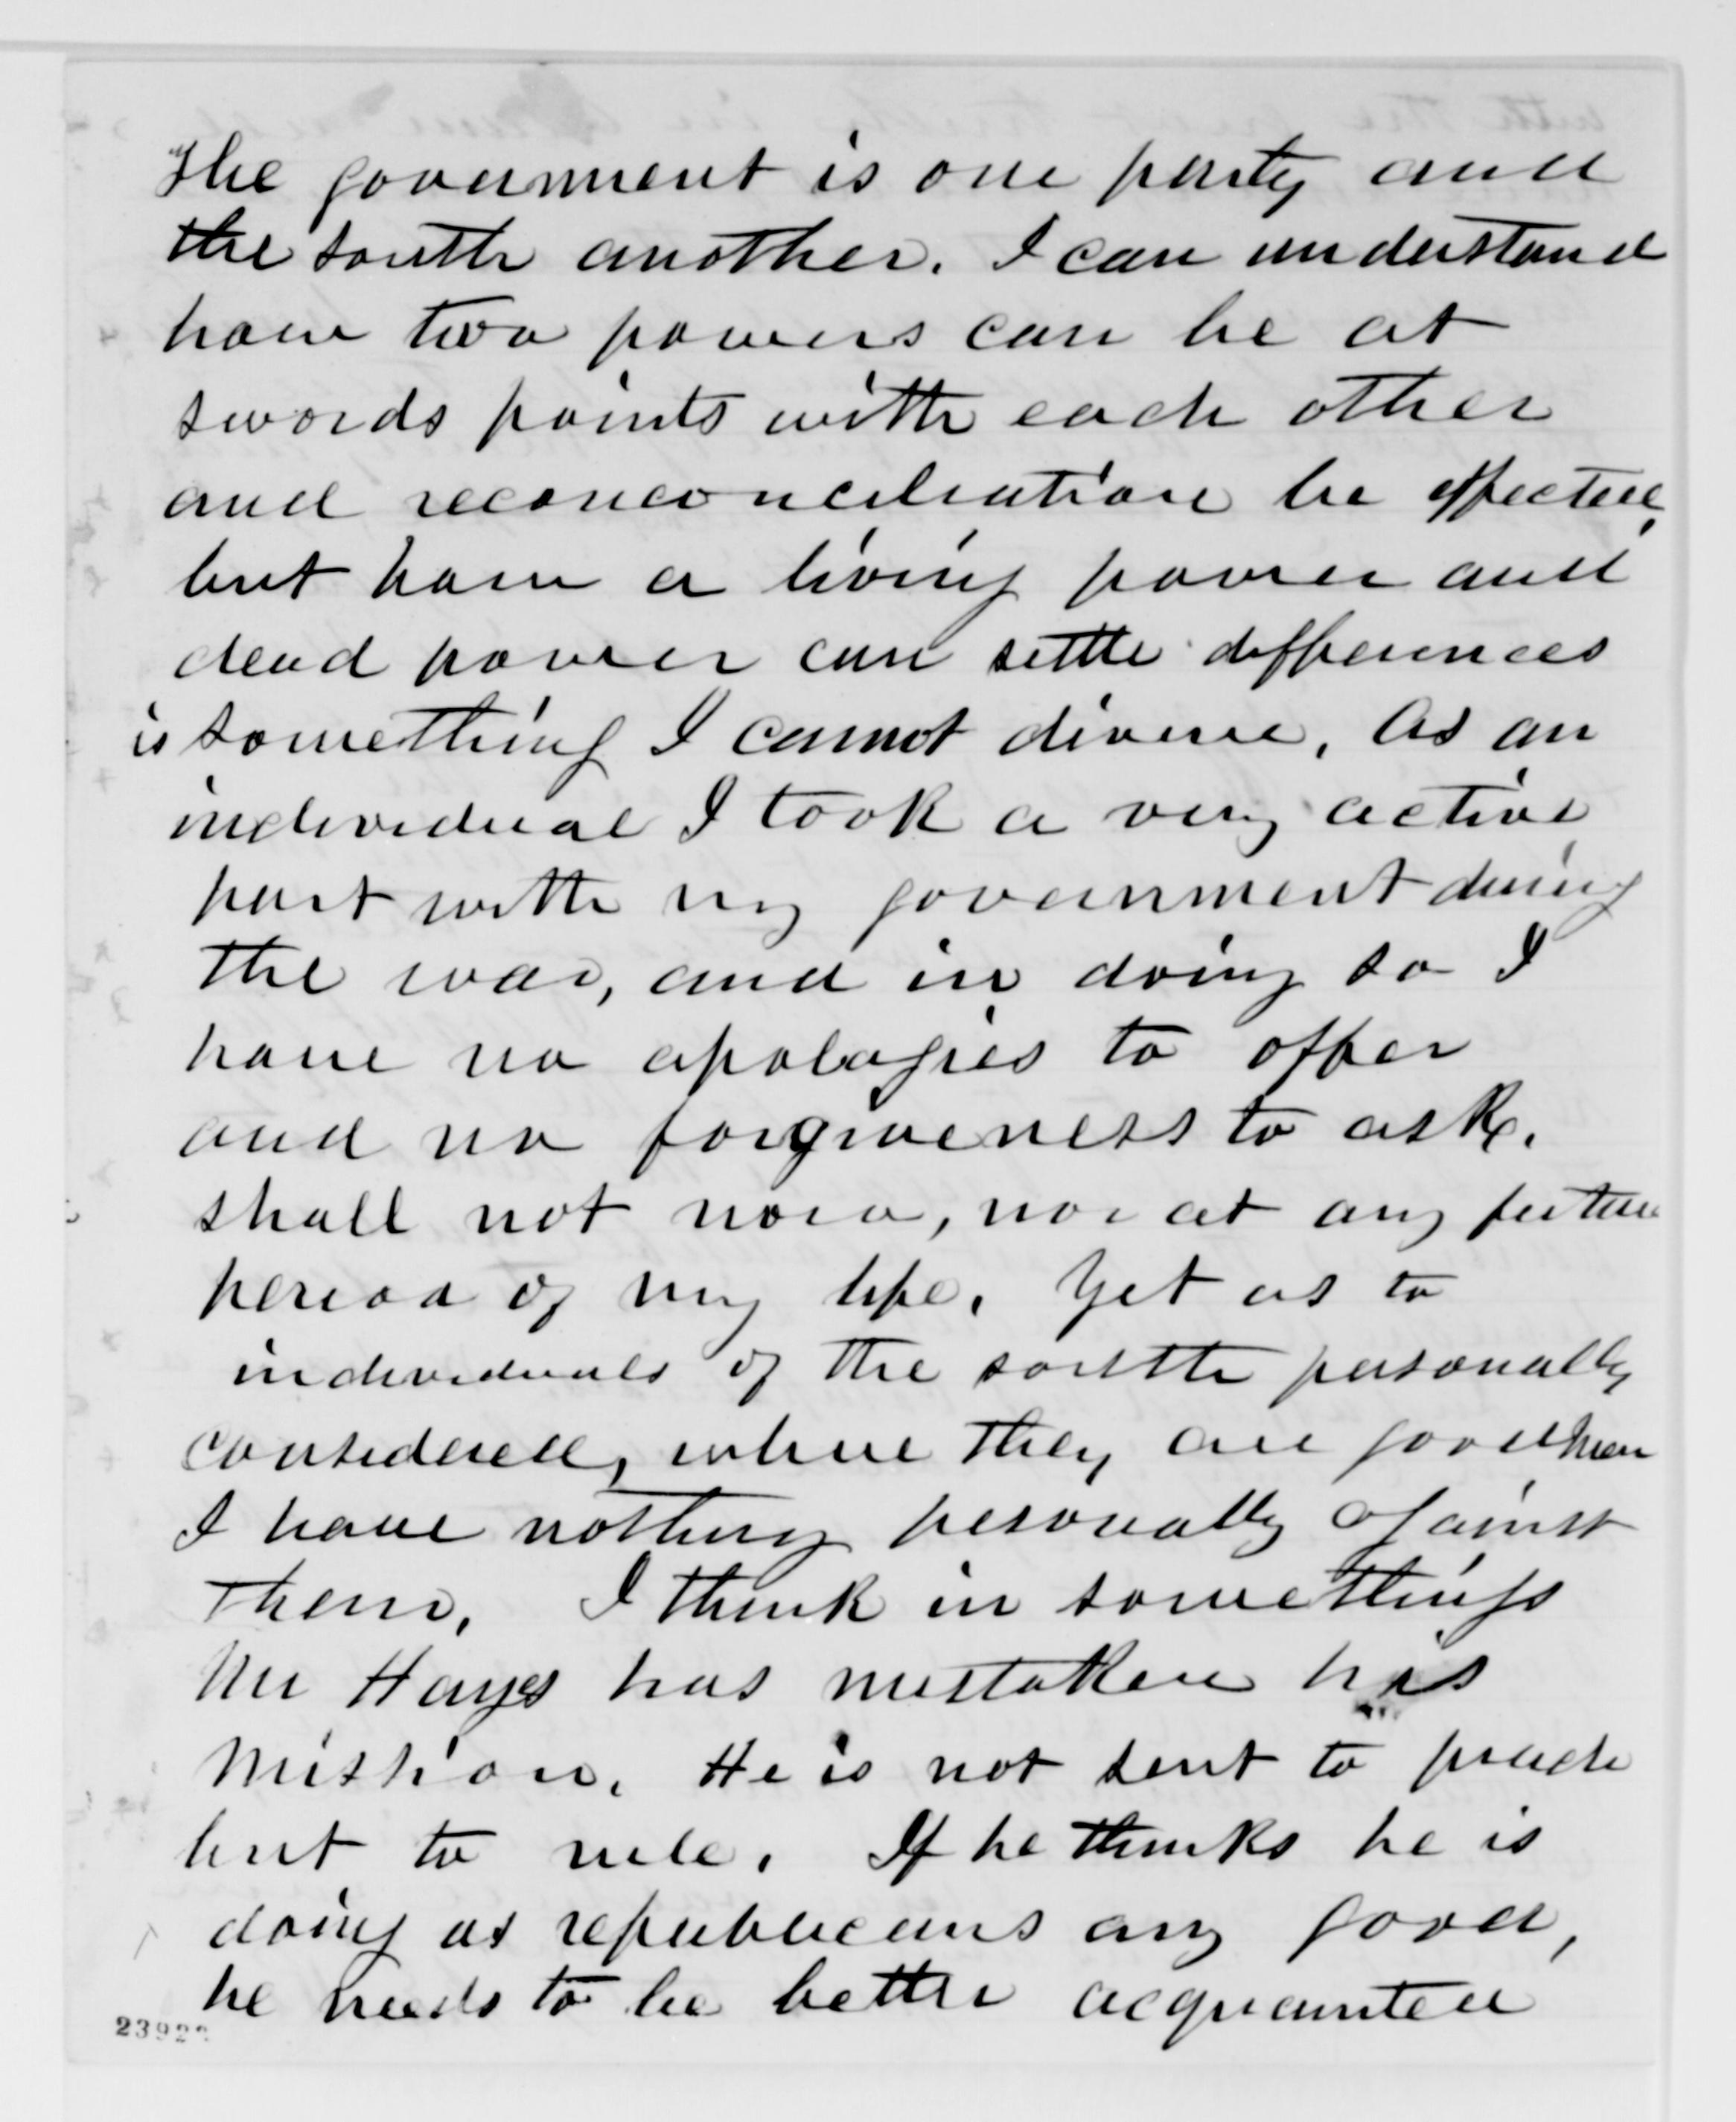 The goverment is one party and
the south another. I can understand
how two powers can be at
swords points with each other
and reconconciliation be effected,
but how a living power and
dead power can settle differences
is something I cannot divine. As an
individual I took a very active
part with my government during
the war, and in doing so I
have no apologies to offer
and no forgiveness to ask.
shall not now, nor at any future
period of my life. Yet as to
individuals of the south personally
considered, where they are good men
I have nothing personally against
them. I think in some things
Mr Hayes has mistaken his
mission. He is not sent to preach
but to rule. If he thinks he is
doing us republicans any good,
he needs to be better acquainted